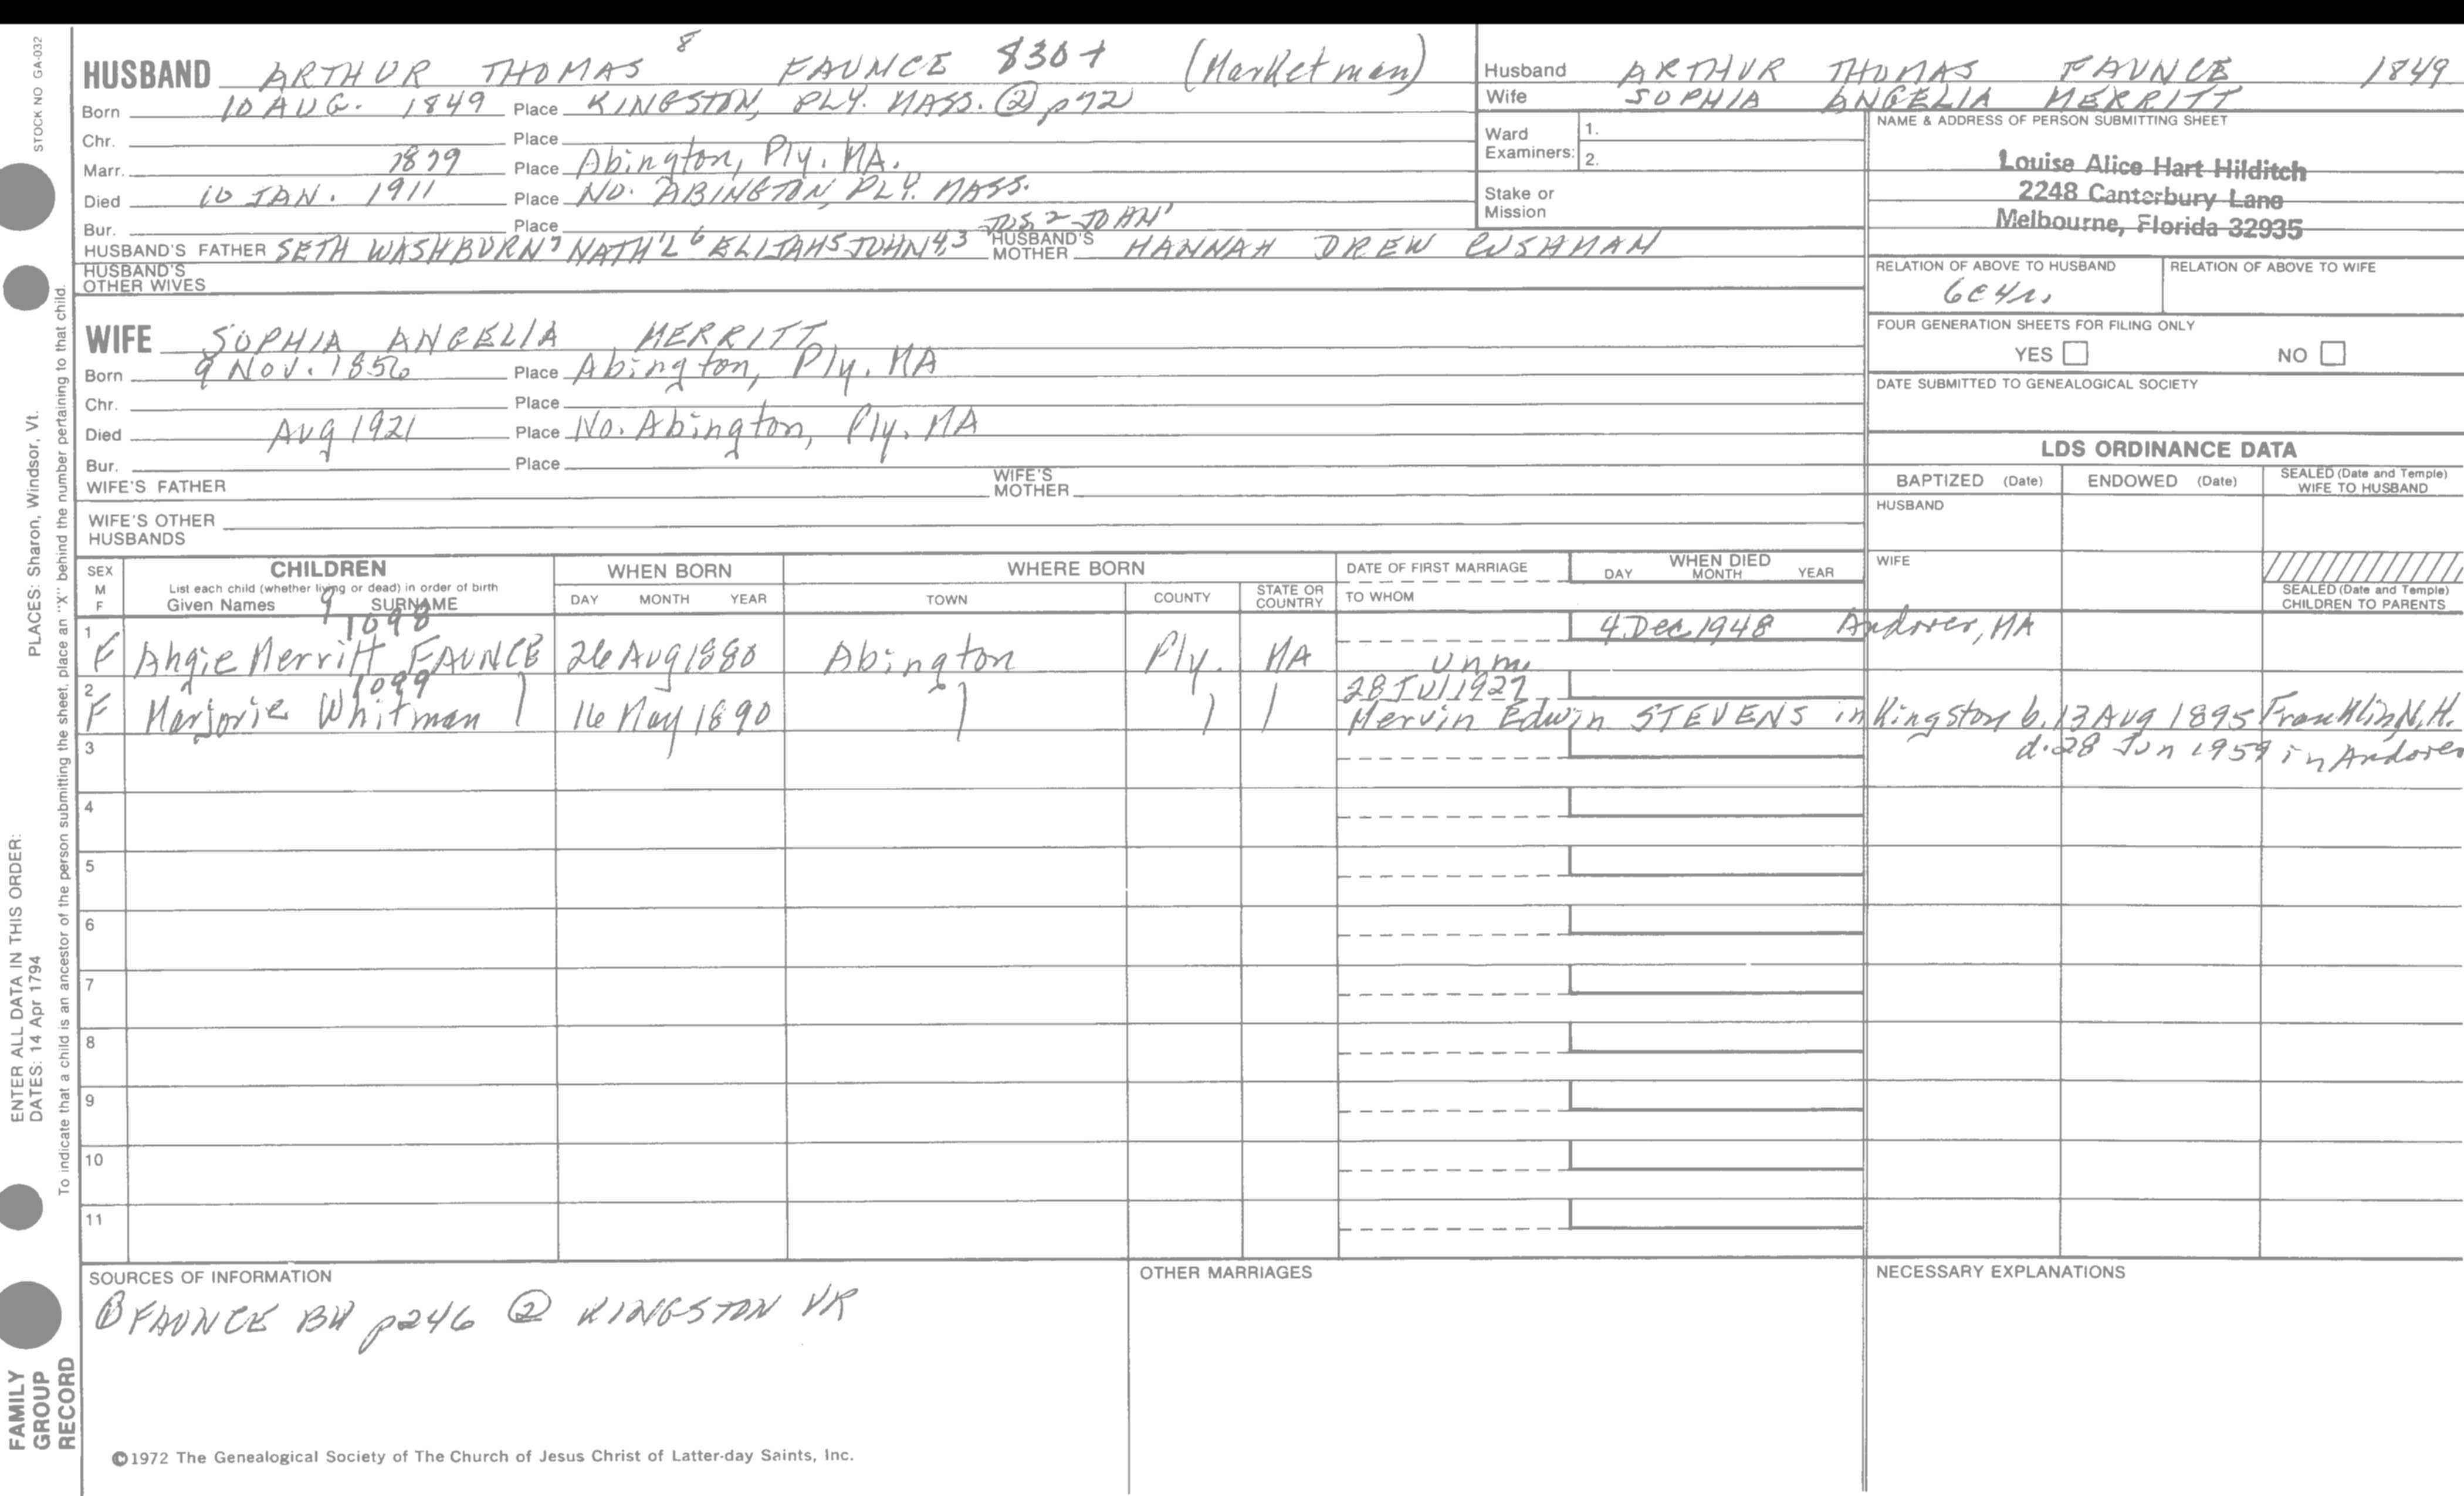 STOCK NO GA-032
HUSBAND ARTHUR THOMAS 8 FAUNCE 830+ (Marketman)
Born 10 AUG. 1849 Place KINGSTON, PLY. MASS. ② p72
Chr. Place
Marr. 1879 Place Abington, Ply. MA.
Died 10 JAN. 1911 Place NO. ABINGTON, PLY. MASS.
Bur. Place JOS 2 JOHN 1
HUSBAND'S FATHER SETH WASHBURN 7 NATH'L 6 ELIJAH 5 JOHN 4,3 HUSBAND'S MOTHER HANNAH DREW CUSHMAN
HUSBAND'S OTHER WIVES
WIFE SOPHIA ANGELIA MERRITT
Born 9 Nov. 1856 Place Abington, Ply. MA
Chr. Place
Died Aug 1921 Place No. Abington, Ply. MA
Bur. Place
WIFE'S FATHER WIFE'S MOTHER
WIFE'S OTHER HUSBANDS
Husband ARTHUR THOMAS FAUNCE 1849
Wife SOPHIA ANGELIA MERRITT
Ward Examiners: 1.
2.
Stake or Mission
NAME & ADDRESS OF PERSON SUBMITTING SHEET
Louise Alice Hart Hilditch
2248 Canterbury Lane
Melbourne, Florida 32935
RELATION OF ABOVE TO HUSBAND RELATION OF ABOVE TO WIFE
6C4r.
FOUR GENERATION SHEETS FOR FILING ONLY
YES NO
DATE SUBMITTED TO GENEALOGICAL SOCIETY
LDS ORDINANCE DATA
BAPTIZED (Date) ENDOWED (Date) SEALED (Date and Temple) WIFE TO HUSBAND
HUSBAND
WIFE
SEALED (Date and Temple) CHILDREN TO PARENTS
SEX M F
CHILDREN
List each child (whether living or dead) in order of birth
Given Names 9 SURNAME
WHEN BORN
DAY MONTH YEAR
WHERE BORN
TOWN COUNTY STATE OR COUNTRY
DATE OF FIRST MARRIAGE
TO WHOM
WHEN DIED
DAY MONTH YEAR
1098
1 F Angie Merritt FAUNCE 26 Aug 1880 Abington Ply. MA unm. 4 Dec 1948 Andover, MA
1099
2 F Marjorie Whitman 16 May 1890 28 Jul 1927
Mervin Edwin STEVENS in Kingston b. 13 Aug 1895 Franklin N.H.
3 d. 28 Jun 1959 in Andover
4
5
6
7
8
9
10
11
SOURCES OF INFORMATION
① FAUNCE BK p246 ② KINGSTON VR
OTHER MARRIAGES
NECESSARY EXPLANATIONS
©1972 The Genealogical Society of The Church of Jesus Christ of Latter-day Saints, Inc.
FAMILY
GROUP
RECORD
ENTER ALL DATA IN THIS ORDER:
DATES: 14 Apr 1794
PLACES: Sharon, Windsor, Vt.
To indicate that a child is an ancestor of the person submitting the sheet, place an "X" behind the number pertaining to that child.